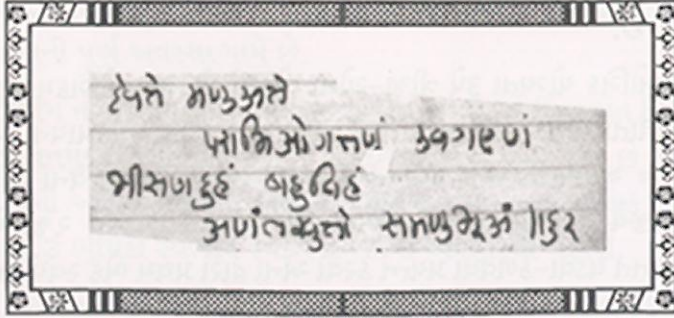 देवत्ते मणुअत्ते
पराभिओगत्तणं उवगएणं
भीसणदुहं बहुविहं
अणंतखुत्तो समणुभूअं ॥६२